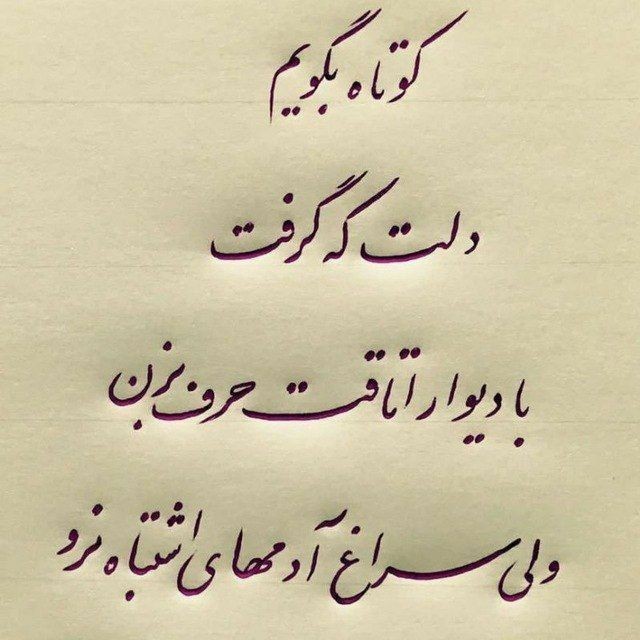 کوتاه بگویم
دلت که گرفت
با دیوار اتاقت حرف بزن
ولی سراغ آدمهای اشتباه نرو